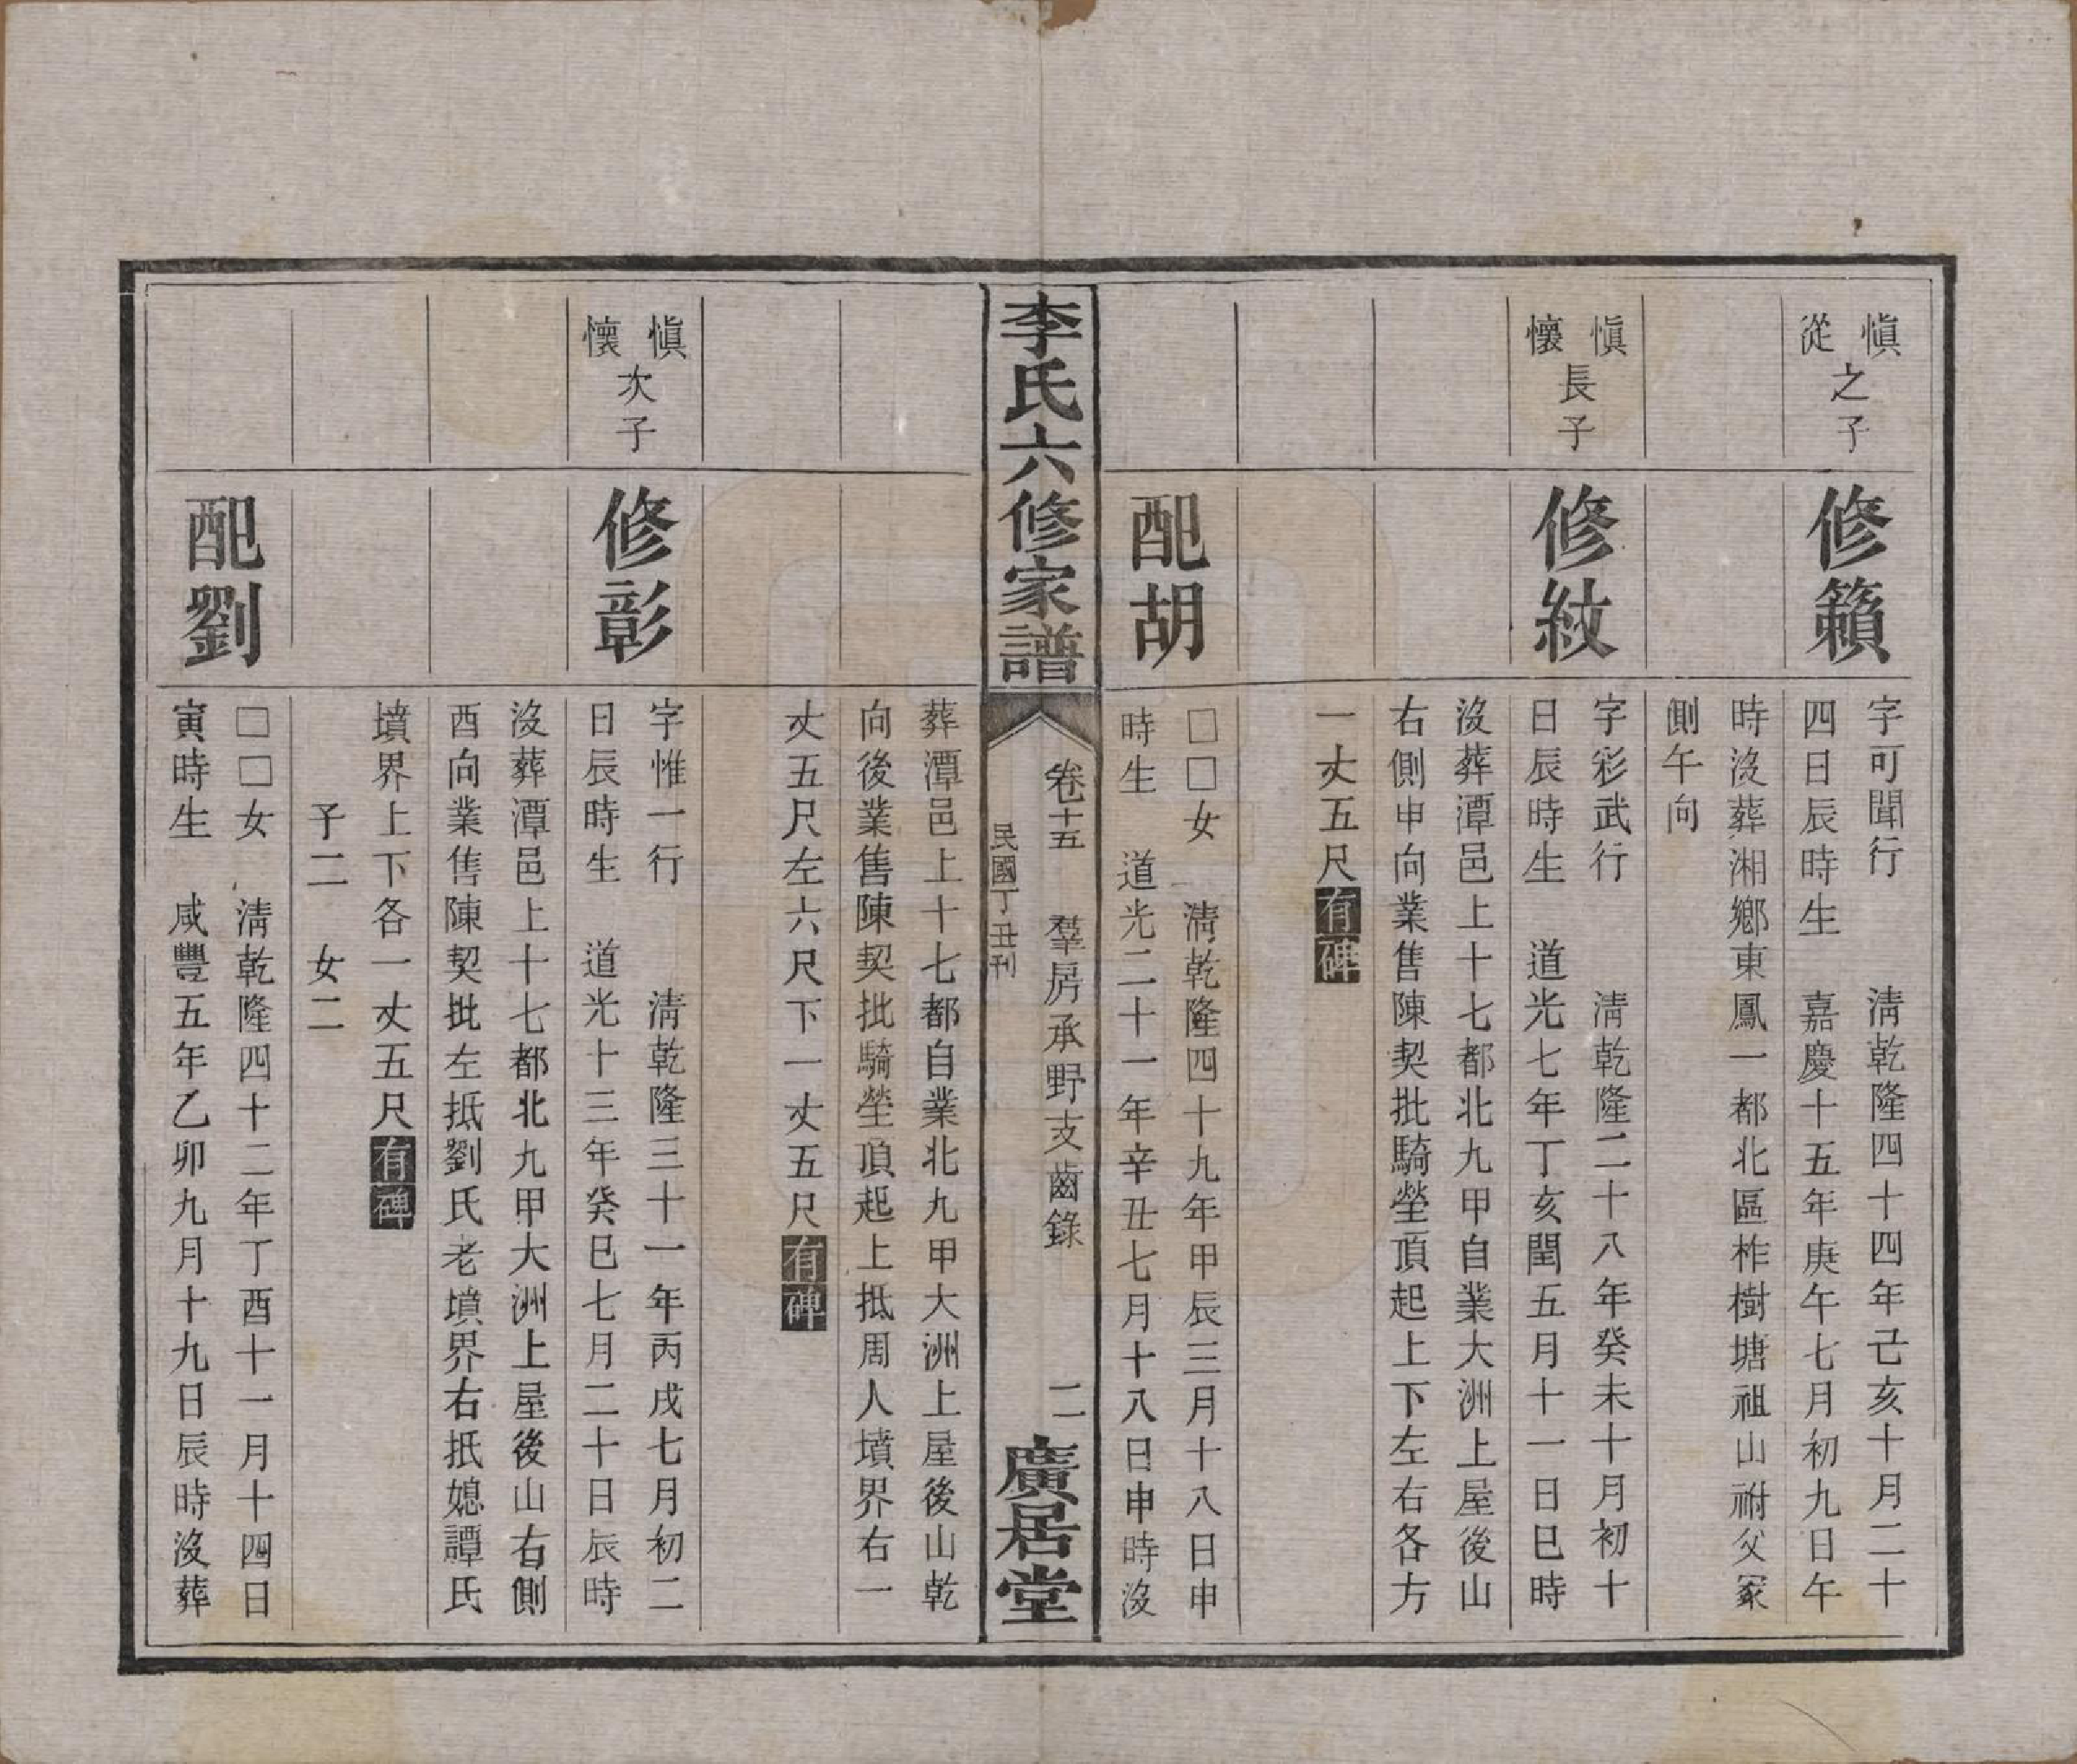 愼從之子
修籟
字可聞行　　清乾隆四十四年己亥十月二十
四日辰時生　嘉慶十五年庚午七月初九日午
時沒葬湘鄉東鳳一都北區柞樹塘祖山祔父冢
側午向
愼懷長子
修紋
字彩武行　　清乾隆二十八年癸未十月初十
日辰時生　道光七年丁亥閏五月十一日巳時
沒葬潭邑上十七都北九甲自業大洲上屋後山
右側申向業售陳契批騎塋頂起上下左右各方
一丈五尺有碑
配胡
□□女　清乾隆四十九年甲辰三月十八日申
時生　道光二十一年辛丑七月十八日申時沒
李氏六修家譜
卷十五　羣房承野支齒錄
民國丁丑刊
二
廣居堂
葬潭邑上十七都自業北九甲大洲上屋後山乾
向後業售陳契批騎塋頂起上抵周人墳界右一
丈五尺左六尺下一丈五尺有碑
愼懷次子
修彰
字惟一行　　清乾隆三十一年丙戌七月初二
日辰時生　道光十三年癸巳七月二十日辰時
沒葬潭邑上十七都北九甲大洲上屋後山右側
酉向業售陳契批左抵劉氏老墳界右抵媳譚氏
墳界上下各一丈五尺有碑
子二　女二
配劉
□□女　清乾隆四十二年丁酉十一月十四日
寅時生　咸豐五年乙卯九月十九日辰時沒葬